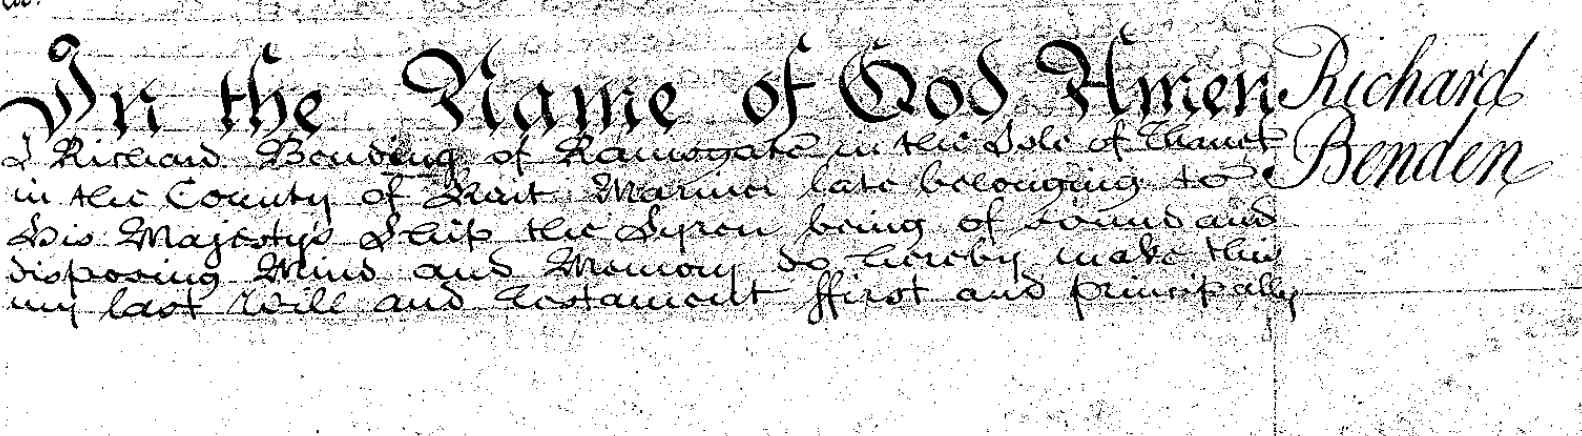 In the Name of God Amen
I Richard Bending of Ramsgate in the Isle of Thanet
in the County of Kent Mariner late belonging to
His Majestys Ship the Syren being of sound and
disposing Mind and Memory do hereby make this
my last Will and Testament ffirst and principally
Richard
Benden